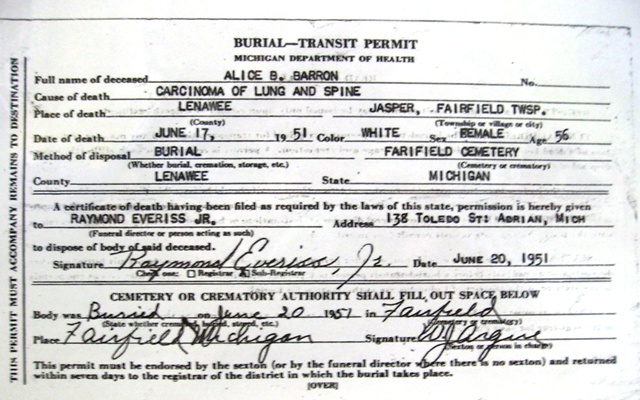 BURIAL—TRANSIT PERMIT
MICHIGAN DEPARTMENT OF HEALTH
Full name of deceased ALICE B. BARRON No.
Cause of death CARCINOMA OF LUNG AND SPINE
Place of death LENAWEE JASPER, FAIRFIELD TWSP.
(County) (Township or village or city)
Date of death JUNE 17, 19 51 Color WHITE Sex BEMALE Age 56
Method of disposal BURIAL FARIFIELD CEMETERY
(Whether burial, cremation, storage, etc.) (Cemetery or crematory)
County LENAWEE State MICHIGAN
A certificate of death having been filed as required by the laws of this state, permission is hereby given
to RAYMOND EVERISS JR. Address 138 TOLEDO ST: ADRIAN, MICH
(Funeral director or person acting as such)
to dispose of body of said deceased.
Signature Raymond Everiss, Jr. Date JUNE 20, 1951
Check one: Registrar Sub-Registrar
CEMETERY OR CREMATORY AUTHORITY SHALL FILL OUT SPACE BELOW
Body was Buried on June 20 1951 in Fairfield
(State whether cremated, buried, stored, etc.) (Cemetery or crematory)
Place Fairfield Michigan Signature
(Sexton or person in charge)
This permit must be endorsed by the sexton (or by the funeral director where there is no sexton) and returned
within seven days to the registrar of the district in which the burial takes place.
[OVER]
THIS PERMIT MUST ACCOMPANY REMAINS TO DESTINATION